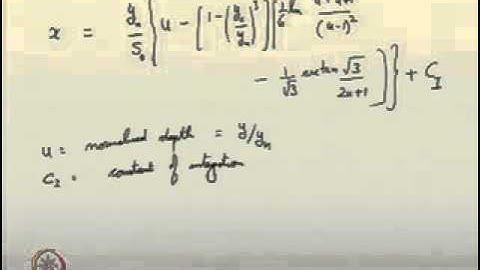 x = y_n/S_0 { u - [1-(y_c/y_n)^3] [ 1/6 ln /(u-1)^2
- 1/√3 arctan √3/2u+1 ] } + C_I
u = normalised depth = y/y_n
C_I = constant of integration